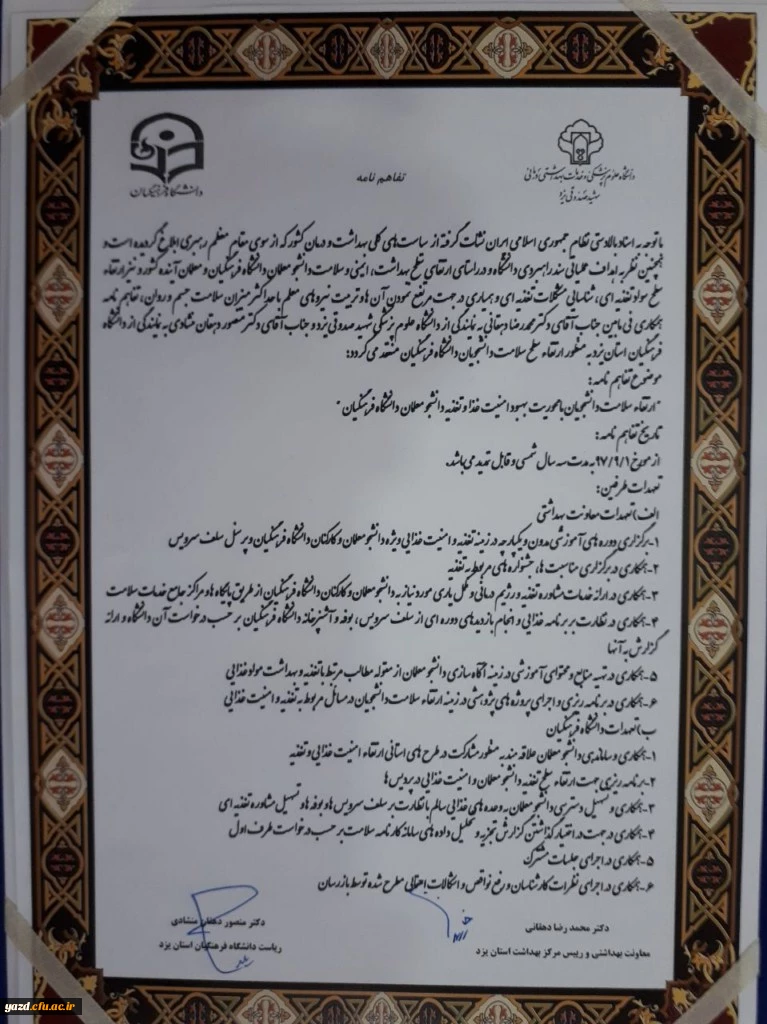 دانشگاه فرهنگیان
دانشگاه علوم پزشکی و خدمات بهداشتی درمانی
شهید صدوقی یزد
تفاهم نامه
با توجه به اسناد بالادستی نظام جمهوری اسلامی ایران نشات گرفته از سیاست های کلی بهداشت و درمان کشور که از سوی مقام معظم رهبری ابلاغ گردیده است و
همچنین نظر به اهداف عملیاتی سند راهبردی دانشگاه و در راستای ارتقای سطح بهداشت، ایمنی و سلامت دانشجو معلمان دانشگاه فرهنگیان و معلمان آینده کشور و نیز ارتقاء
سطح سواد تغذیه ای، شناسایی مشکلات تغذیه ای و بیماری در جهت مرتفع نمودن آن ها و تربیت نیروهای معلم با حداکثر میزان سلامت جسم و روان، تفاهم نامه
همکاری فی مابین جناب آقای دکتر محمدرضا دهقانی به نمایندگی از دانشگاه علوم پزشکی شهید صدوقی یزد و جناب آقای دکتر منصور دهقان منشادی به نمایندگی از دانشگاه
فرهنگیان استان یزد به منظور ارتقاء سطح سلامت دانشجویان دانشگاه فرهنگیان منعقد می گردد:
موضوع تفاهم نامه:
"ارتقاء سلامت دانشجویان با محوریت بهبود امنیت غذا و تغذیه دانشجو معلمان دانشگاه فرهنگیان"
تاریخ تفاهم نامه:
از مورخ ۹۷/۹/۱ به مدت سه سال شمسی و قابل تمدید می باشد.
تعهدات طرفین:
الف) تعهدات معاونت بهداشتی
۱-برگزاری دوره های آموزشی مدون و یکپارچه در زمینه تغذیه و امنیت غذایی ویژه دانشجو معلمان و کارکنان دانشگاه فرهنگیان و پرسنل سلف سرویس
۲-همکاری در برگزاری مناسبت ها، جشنواره های مربوط به تغذیه
۳-همکاری در ارائه خدمات مشاوره تغذیه و رژیم درمانی و مکمل یاری مورد نیاز به دانشجو معلمان و کارکنان دانشگاه فرهنگیان از طریق پایگاه ها و مراکز جامع خدمات سلامت
۴-همکاری در نظارت بر برنامه غذایی و انجام بازدیدهای دوره ای از سلف سرویس، بوفه و آشپزخانه دانشگاه فرهنگیان بر حسب درخواست آن دانشگاه و ارائه
گزارش به آنها
۵-همکاری در تهیه منابع و محتوای آموزشی در زمینه آگاه سازی دانشجو معلمان از مقوله مطالب مرتبط با تغذیه و بهداشت مواد غذایی
۶-همکاری در برنامه ریزی و اجرای پروژه های پژوهشی در زمینه ارتقاء سلامت دانشجویان در مسائل مربوط به تغذیه و امنیت غذایی
ب) تعهدات دانشگاه فرهنگیان
۱-همکاری و ساماندهی دانشجو معلمان علاقه مند به منظور مشارکت در طرح های استانی ارتقاء امنیت غذایی و تغذیه
۲-برنامه ریزی جهت ارتقاء سطح تغذیه دانشجو معلمان و امنیت غذایی در پردیس ها
۳-همکاری و تسهیل دسترسی دانشجو معلمان به وعده های غذایی سالم با نظارت بر سلف سرویس ها و بوفه ها و تسهیل مشاوره تغذیه ای
۴-همکاری در جهت در اختیار گذاشتن گزارش تجزیه و تحلیل داده های سامانه کارنامه سلامت بر حسب درخواست طرف اول
۵-همکاری در اجرای جلسات مشترک
۶-همکاری در اجرای نظرات کارشناسان و رفع نواقص و اشکالات احتمالی مطرح شده توسط بازرسان
دکتر محمد رضا دهقانی
معاونت بهداشتی و رییس مرکز بهداشت استان یزد
دکتر منصور دهقان منشادی
ریاست دانشگاه فرهنگیان استان یزد
yazd.cfu.ac.ir